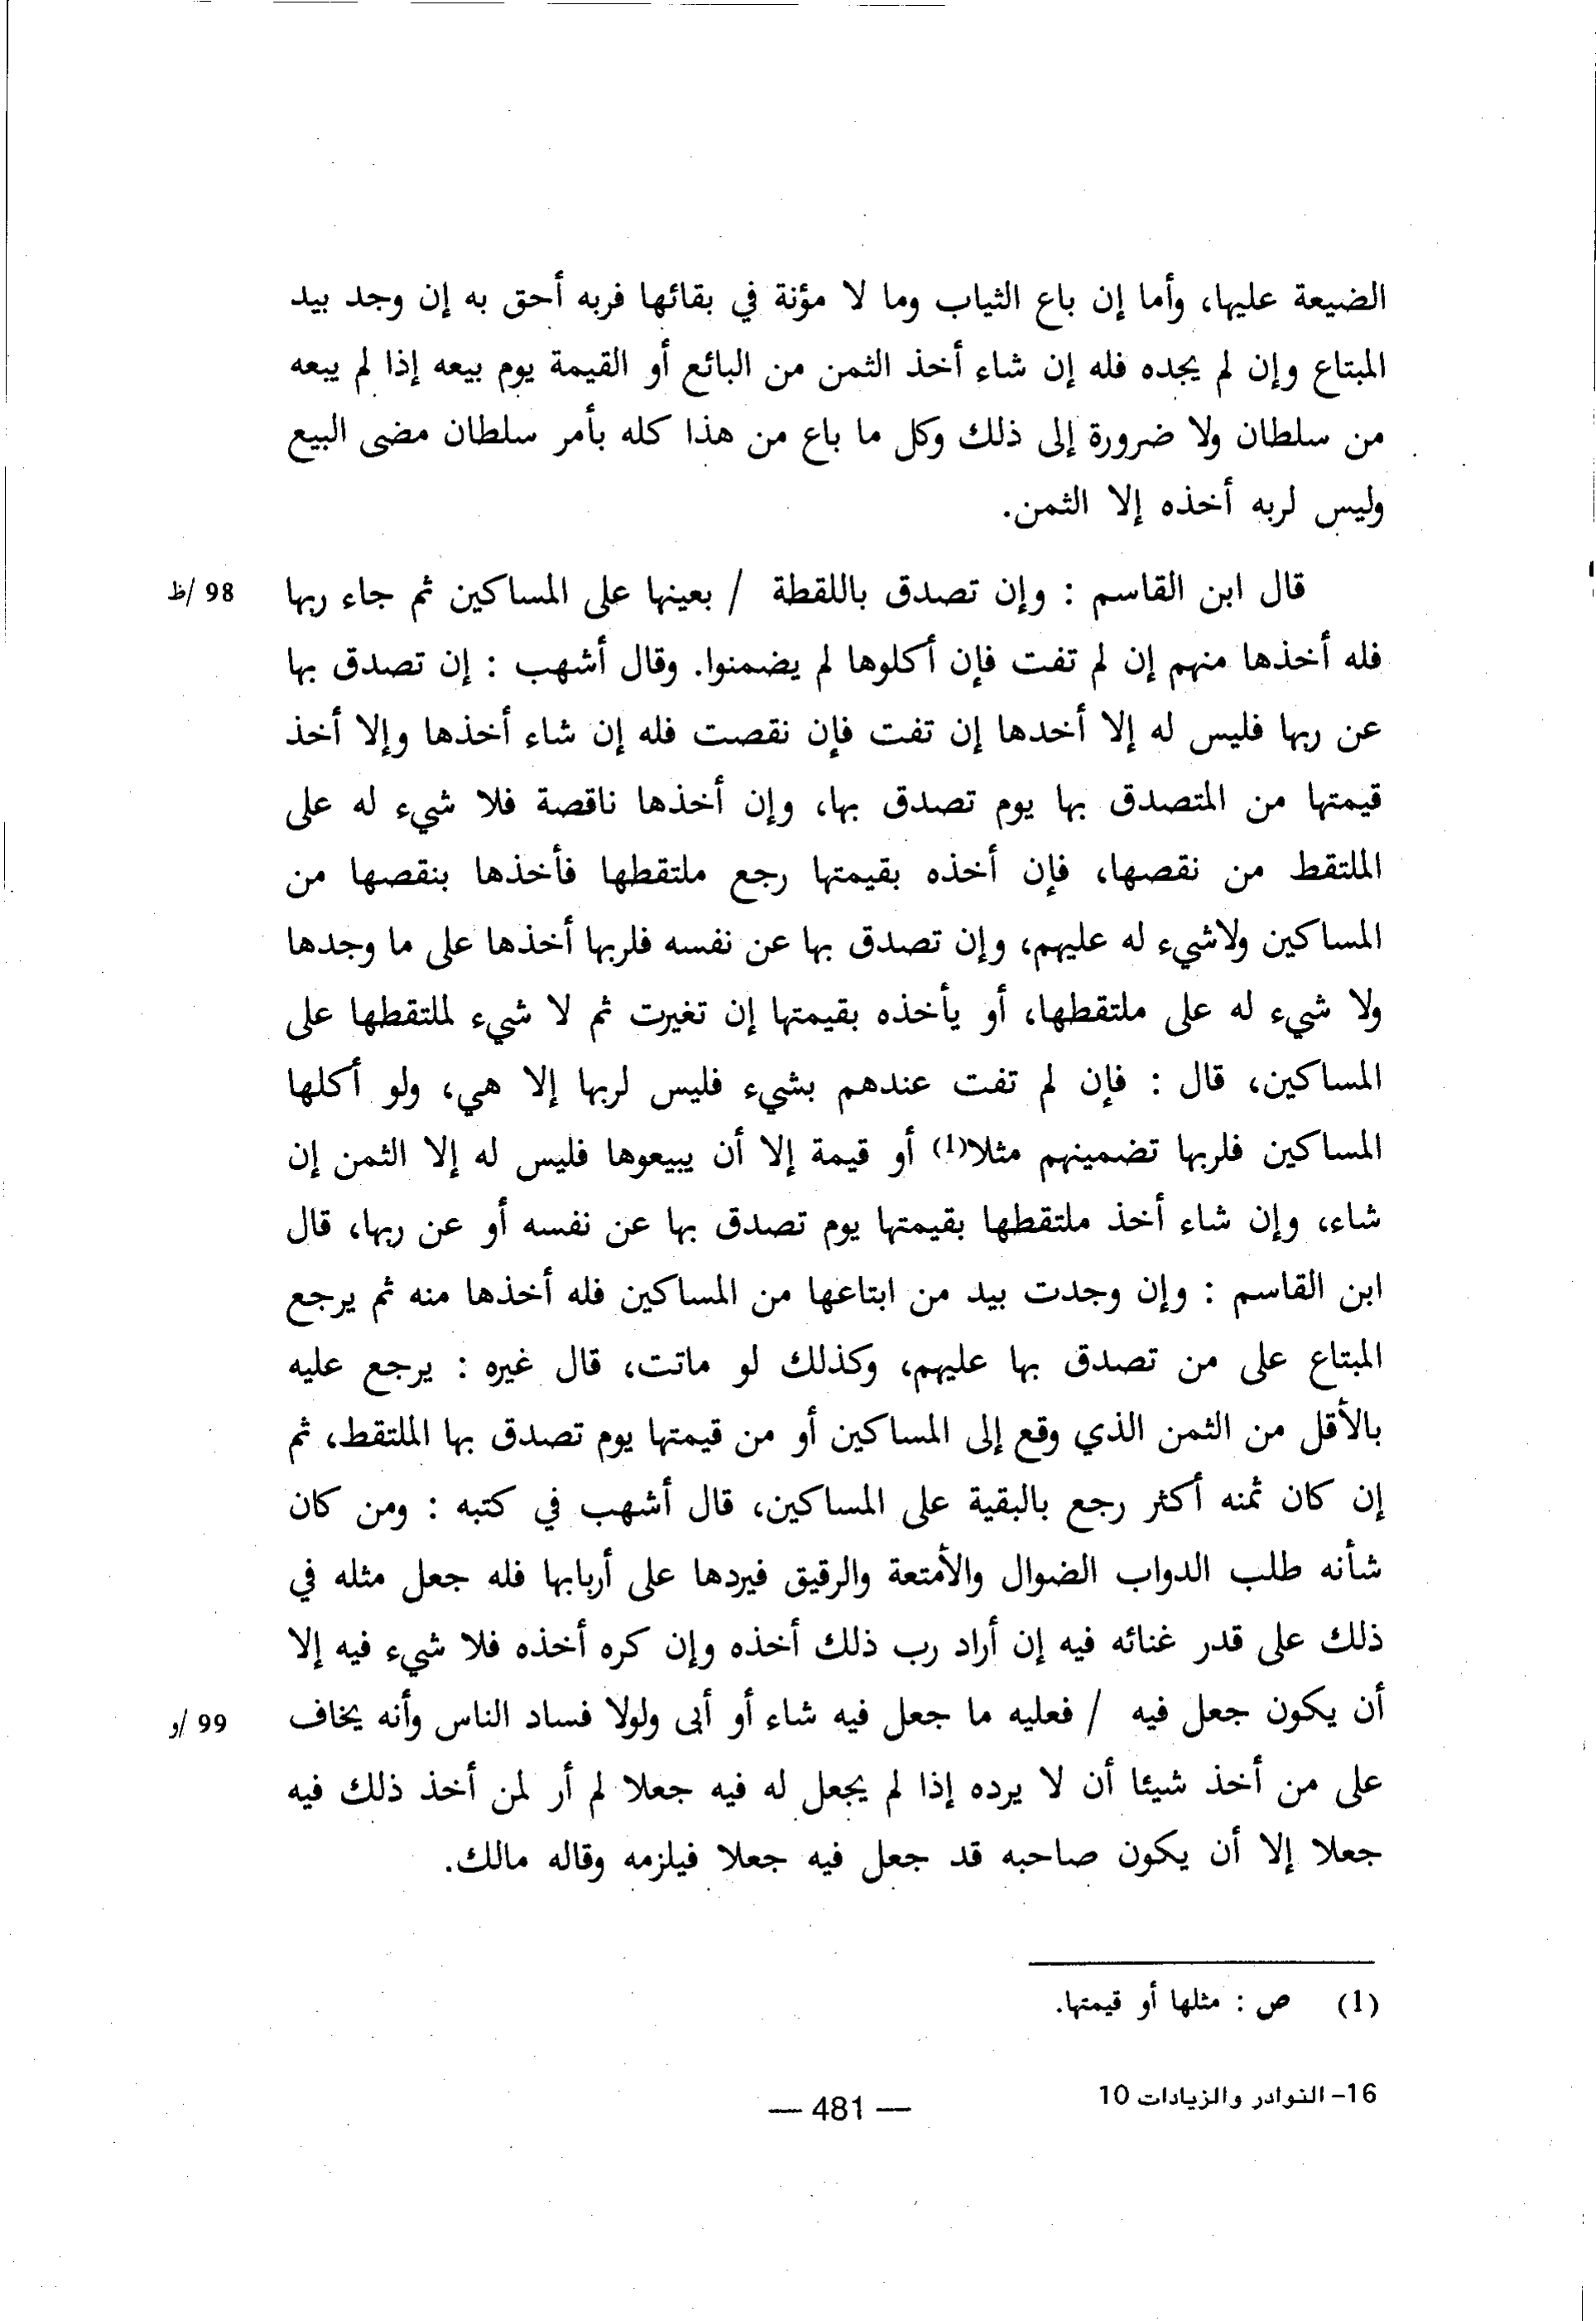 الضيعة عليها، وأما إن باع الثياب وما لا مؤنة في بقائها فربه أحق به إن وجد بيد
المبتاع وإن لم يجده فله إن شاء أخذ الثمن من البائع أو القيمة يوم بيعه إذا لم يبعه
من سلطان ولا ضرورة إلى ذلك وكل ما باع من هذا كله بأمر سلطان مضى البيع
وليس لربه أخذه إلا الثمن.
قال ابن القاسم : وإن تصدق باللقطة / بعينها على المساكين ثم جاء ربها 98 /ظ
فله أخذها منهم إن لم تفت فإن أكلوها لم يضمنوا. وقال أشهب : إن تصدق بها
عن ربها فليس له إلا أخدها إن تفت فإن نقصت فله إن شاء أخذها وإلا أخذ
قيمتها من المتصدق بها يوم تصدق بها، وإن أخذها ناقصة فلا شيء له على
الملتقط من نقصها، فإن أخذه بقيمتها رجع ملتقطها فأخذها بنقصها من
المساكين ولاشيء له عليهم، وإن تصدق بها عن نفسه فلربها أخذها على ما وجدها
ولا شيء له على ملتقطها، أو يأخذه بقيمتها إن تغيرت ثم لا شيء لملتقطها على
المساكين، قال : فإن لم تفت عندهم بشيء فليس لربها إلا هي، ولو أكلها
المساكين فلربها تضمينهم مثلا(1) أو قيمة إلا أن يبيعوها فليس له إلا الثمن إن
شاء، وإن شاء أخذ ملتقطها بقيمتها يوم تصدق بها عن نفسه أو عن ربها، قال
ابن القاسم : وإن وجدت بيد من ابتاعها من المساكين فله أخذها منه ثم يرجع
المبتاع على من تصدق بها عليهم، وكذلك لو ماتت، قال غيره : يرجع عليه
بالأقل من الثمن الذي وقع إلى المساكين أو من قيمتها يوم تصدق بها الملتقط، ثم
إن كان ثمنه أكثر رجع بالبقية على المساكين، قال أشهب في كتبه : ومن كان
شأنه طلب الدواب الضوال والأمتعة والرقيق فيردها على أربابها فله جعل مثله في
ذلك على قدر غنائه فيه إن أراد رب ذلك أخذه وإن كره أخذه فلا شيء فيه إلا
أن يكون جعل فيه / فعليه ما جعل فيه شاء أو أبى ولولا فساد الناس وأنه يخاف 99 /و
على من أخذ شيئا أن لا يرده إذا لم يجعل له فيه جعلا لم أر لمن أخذ ذلك فيه
جعلا إلا أن يكون صاحبه قد جعل فيه جعلا فيلزمه وقاله مالك.
(1) ص : مثلها أو قيمتها.
16- النوادر والزيادات 10
— 481 —